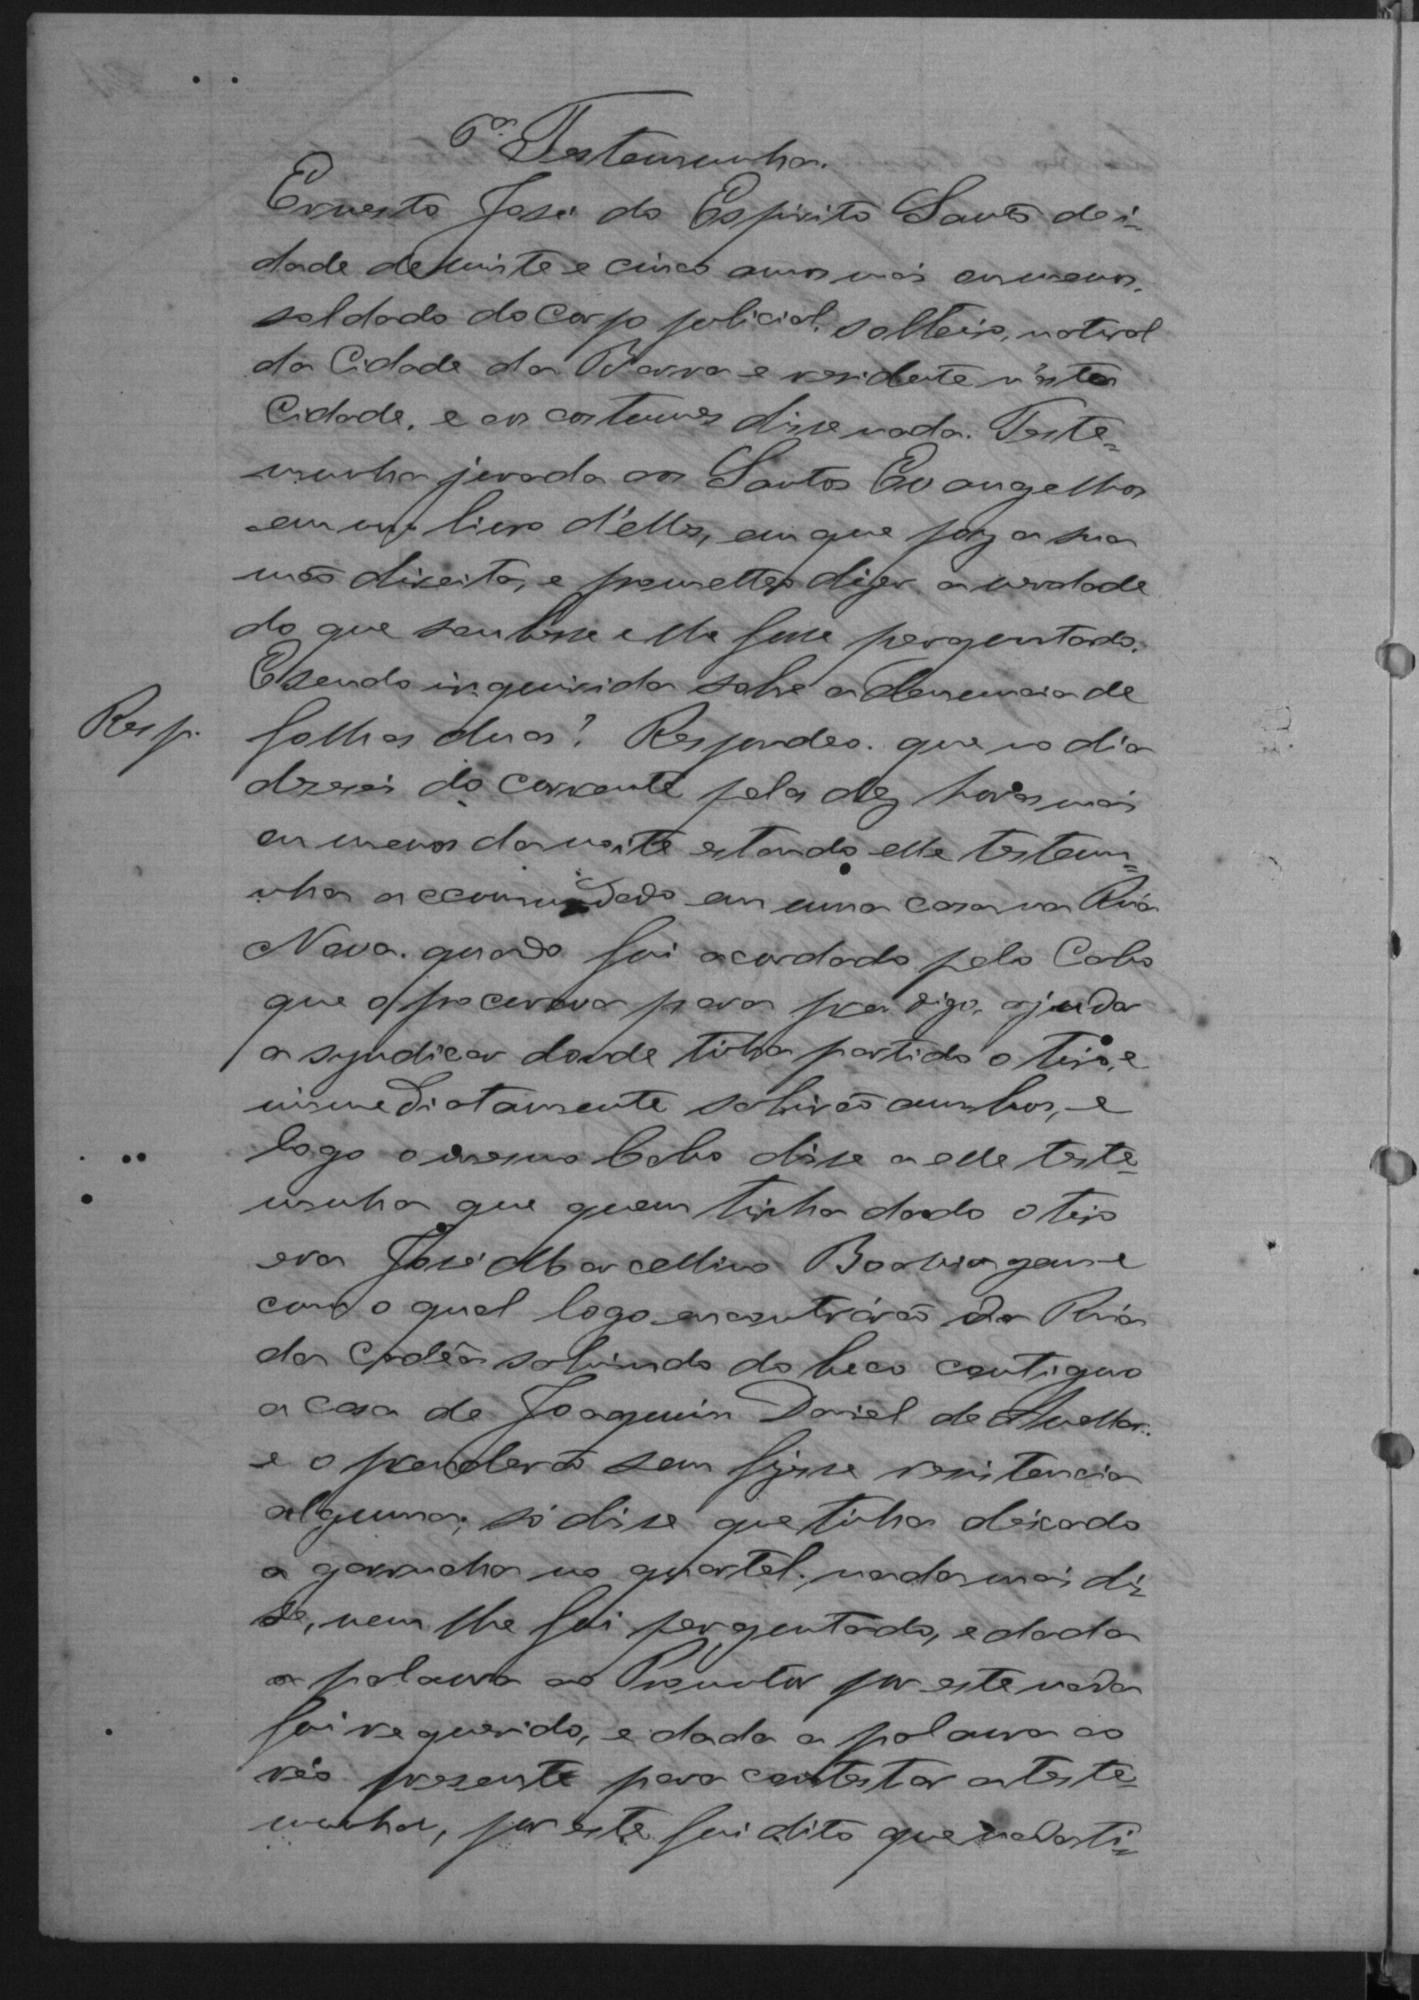 6ª Testemunha.
Ernesto José do Espirito Santo de i-
dade de vinte e cinco annos mais ou menos,
soldado do Corpo policial, solteiro, natural
da Cidade da Barra e residente n'esta
Cidade, e aos costumes disse nada. Teste-
munha jurada aos Santos Evangelhos
em um livro d'elles, em que poz a sua
mão direita, e prometteo dizer a verdade
do que soubesse e lhe fosse perguntado.
E sendo inquirida sobre a denuncia de
Resp. folhas duas? Respondeo. que no dia
deseseis do corrente pelas dez horas mais
ou menos da noite estando elle testemu-
nha accommodado em uma casa na Rúa
Nova. quando foi acordado pelo Cabo
que o procurava para pren digo, ajudar
a syndicar donde tinha partido o tiro, e
immediatamente sahirão ambos, e
logo o mesmo Cabo disse a elle teste-
munha que quem tinha dado o tiro
era José Marcellino
com o qual logo encontrárão na Rúa
da Cadêa sahindo do beco contiguo
a casa de Joaquim Daniel de Avellar.
e o prenderão sem fizesse resistencia
alguma; só disse que tinha deixado
a garrucha no quartel; nada mais dis-
se, nem lhe foi perguntado, e dada
a palavra ao Promotor por este nada
foi requerido, e dada a palavra ao
réo presente para contestar a teste-
munha, por este foi dito que nada ti-